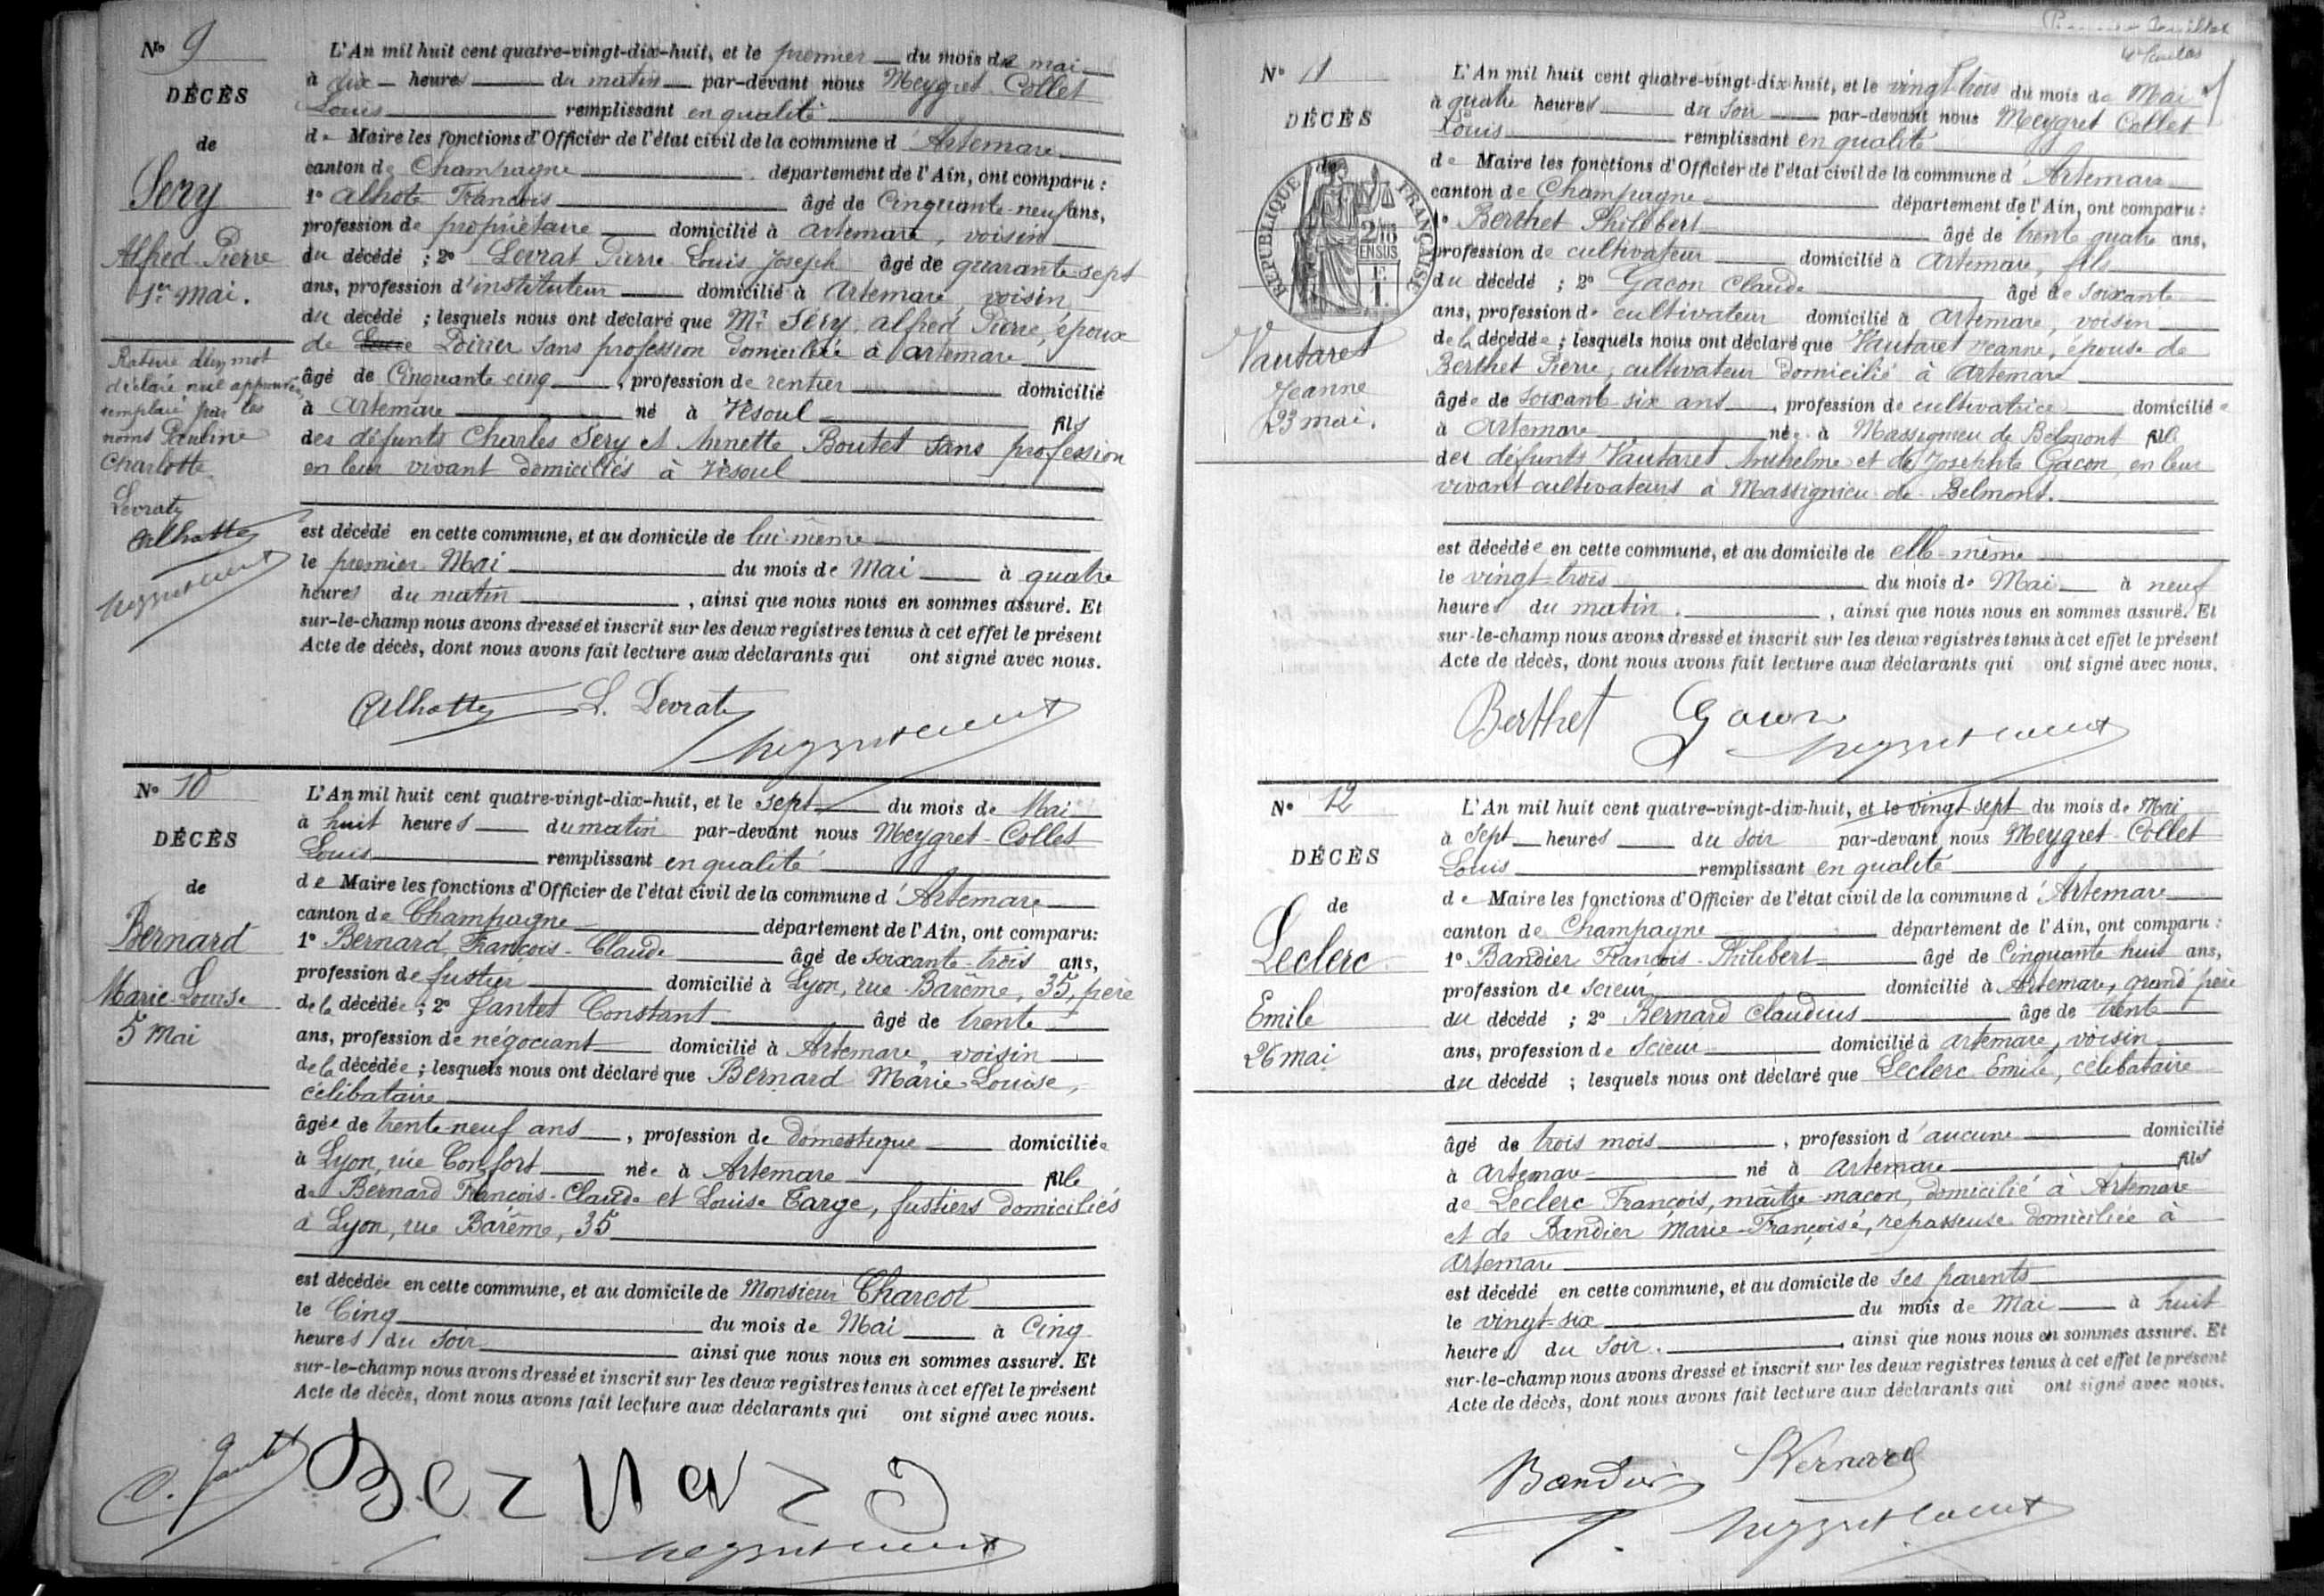 No 9
DÉCÈS
de
Sery
Alfred Pierre
1er Mai.
Rature d'un mot
déclaré nul approuvée,
remplacé par les
noms Pauline
Charlotte
Levrat
Alhotte
L'An mil huit cent quatre-vingt-dix-huit, et le premier du mois de mai
à dix heures du matin par-devant nous Meygret-Collet
Louis remplissant en qualité
de Maire les fonctions d'Officier de l'état civil de la commune d'Artemare
canton de Champagne département de l'Ain, ont comparu :
1° Alhote François âgé de Cinquante-neuf ans,
profession de propriétaire domicilié à artemare, voisin
du décédé ; 2° Levrat Pierre Louis Joseph âgé de quarante-sept
ans, profession d'instituteur domicilié à Artemare, voisin
du décédé ; lesquels nous ont déclaré que Mr Sery, alfred Pierre, époux
de Poirier sans profession domiciliée à artemare
âgé de Cinquante cinq, profession de rentier domicilié
à Artemare né à Vesoul fils
des défunts Charles Sery et Annette Boutet sans profession
en leur vivant domiciliés à Vesoul
est décédé en cette commune, et au domicile de lui-même
le premier Mai du mois de Mai à quatre
heures du matin, ainsi que nous nous en sommes assuré. Et
sur-le-champ nous avons dressé et inscrit sur les deux registres tenus à cet effet le présent
Acte de décès, dont nous avons fait lecture aux déclarants qui ont signé avec nous.
Alhotte L. Levrat
No 10
DÉCÈS
de
Bernard
Marie-Louise
5 Mai
L'An mil huit cent quatre-vingt-dix-huit, et le sept du mois de Mai
à huit heures du matin par-devant nous Meygret-Collet
Louis remplissant en qualité
de Maire les fonctions d'Officier de l'état civil de la commune d'Artemare
canton de Champagne département de l'Ain, ont comparu :
1° Bernard, François-Claude âgé de soixante-trois ans,
profession de fustier domicilié à Lyon, rue Barême, 35, père
de la décédée ; 2° Jantet Constant âgé de trente
ans, profession de négociant domicilié à Artemare, voisin
de la décédée ; lesquels nous ont déclaré que Bernard Marie-Louise,
célibataire
âgée de trente-neuf ans, profession de domestique domiciliée
à Lyon, rue Confort née à Artemare fille
de Bernard François-Claude et Louise Targe, fustiers domiciliés
à Lyon, rue Barême, 35
est décédée en cette commune, et au domicile de Monsieur Charcot
le Cinq du mois de Mai à Cinq
heures du soir ainsi que nous nous en sommes assuré. Et
sur-le-champ nous avons dressé et inscrit sur les deux registres tenus à cet effet le présent
Acte de décès, dont nous avons fait lecture aux déclarants qui ont signé avec nous.
C. Jantet Bernard
No 11
DÉCÈS
de
RÉPUBLIQUE FRANÇAISE
2/10
EN SUS
Vautaret
Jeanne
23 mai.
L'An mil huit cent quatre-vingt-dix-huit, et le vingt-trois du mois de Mai
à quatre heures du soir par-devant nous Meygret Collet
Louis remplissant en qualité
de Maire les fonctions d'Officier de l'état civil de la commune d'Artemare
canton de Champagne département de l'Ain, ont comparu :
1° Berthet Philibert âgé de trente quatre ans,
profession de cultivateur domicilié à Artemare, fils
du décédé ; 2° Gacon Claude âgé de soixante
ans, profession de cultivateur domicilié à Artemare, voisin
de la décédée ; lesquels nous ont déclaré que Vautaret Jeanne, épouse de
Berthet Pierre, cultivateur domicilié à Artemare
âgée de soixante-six ans, profession de cultivatrice domiciliée
à Artemare née à Massignieu de Belmont fille
des défunts Vautaret Anthelme et de Josephte Gacon, en leur
vivant cultivateurs à Massignieu-de-Belmont.
est décédée en cette commune, et au domicile de elle-même
le vingt-trois du mois de Mai à neuf
heures du matin, ainsi que nous nous en sommes assuré. Et
sur-le-champ nous avons dressé et inscrit sur les deux registres tenus à cet effet le présent
Acte de décès, dont nous avons fait lecture aux déclarants qui ont signé avec nous.
Berthet Gacon
No 12
DÉCÈS
de
Leclerc
Emile
26 mai
L'An mil huit cent quatre-vingt-dix-huit, et le vingt-sept du mois de Mai
à sept heures du soir par-devant nous Meygret-Collet
Louis remplissant en qualité
de Maire les fonctions d'Officier de l'état civil de la commune d'Artemare
canton de Champagne département de l'Ain, ont comparu :
1° Bandier François-Philibert âgé de Cinquante huit ans,
profession de scieur domicilié à Artemare, grand père
du décédé ; 2° Bernard Claudius âgé de trente
ans, profession de scieur domicilié à artemare, voisin
du décédé ; lesquels nous ont déclaré que Leclerc Emile, célibataire
âgé de trois mois, profession d'aucune domicilié
à Artemare né à Artemare fils
de Leclerc François, maître-maçon, domicilié à Artemare
et de Bandier Marie-Françoise, repasseuse domiciliée à
Artemare
est décédé en cette commune, et au domicile de ses parents
le vingt-six du mois de Mai à huit
heures du soir. ainsi que nous nous en sommes assuré. Et
sur-le-champ nous avons dressé et inscrit sur les deux registres tenus à cet effet le présent
Acte de décès, dont nous avons fait lecture aux déclarants qui ont signé avec nous.
Bandier Bernard